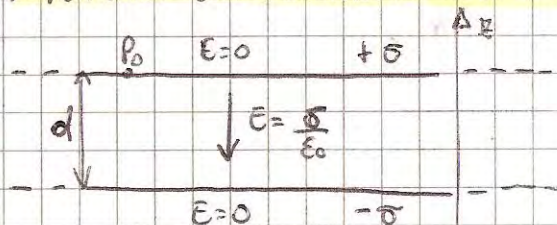 z
P₀ E=0 +σ
d E = σ/ε₀
E=0 -σ